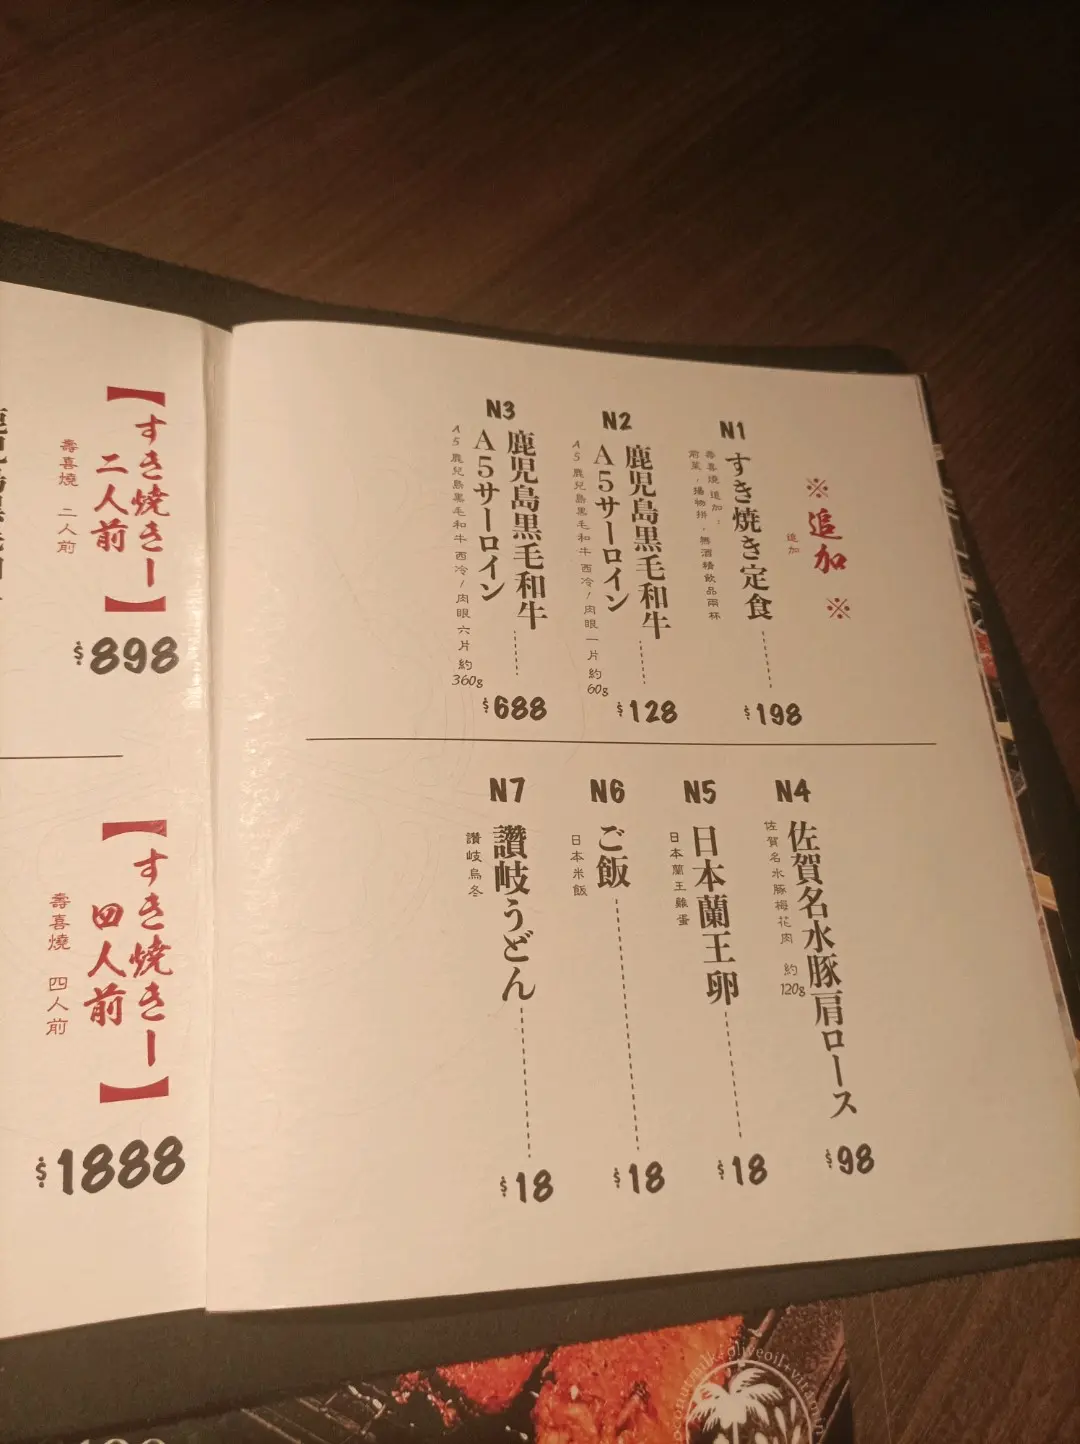 ※追加※
追加
N1
すき焼き定食
壽喜燒 追加：
前菜，揚物拼，無酒精飲品兩杯
$198
N2
鹿児島黒毛和牛
A5サーロイン
A5 鹿兒島黑毛和牛 西冷/肉眼一片 約60g
$128
N3
鹿児島黒毛和牛
A5サーロイン
A5 鹿兒島黑毛和牛 西冷/肉眼 六片 約360g
$688
N4
佐賀名水豚肩ロース
佐賀名水豚梅花肉 約120g
$98
N5
日本蘭王卵
日本蘭王雞蛋
$18
N6
ご飯
日本米飯
$18
N7
讚岐うどん
讚岐烏冬
$18
【すき焼きー
二人前】
壽喜燒 二人前
$898
【すき焼きー
四人前】
壽喜燒 四人前
$1888